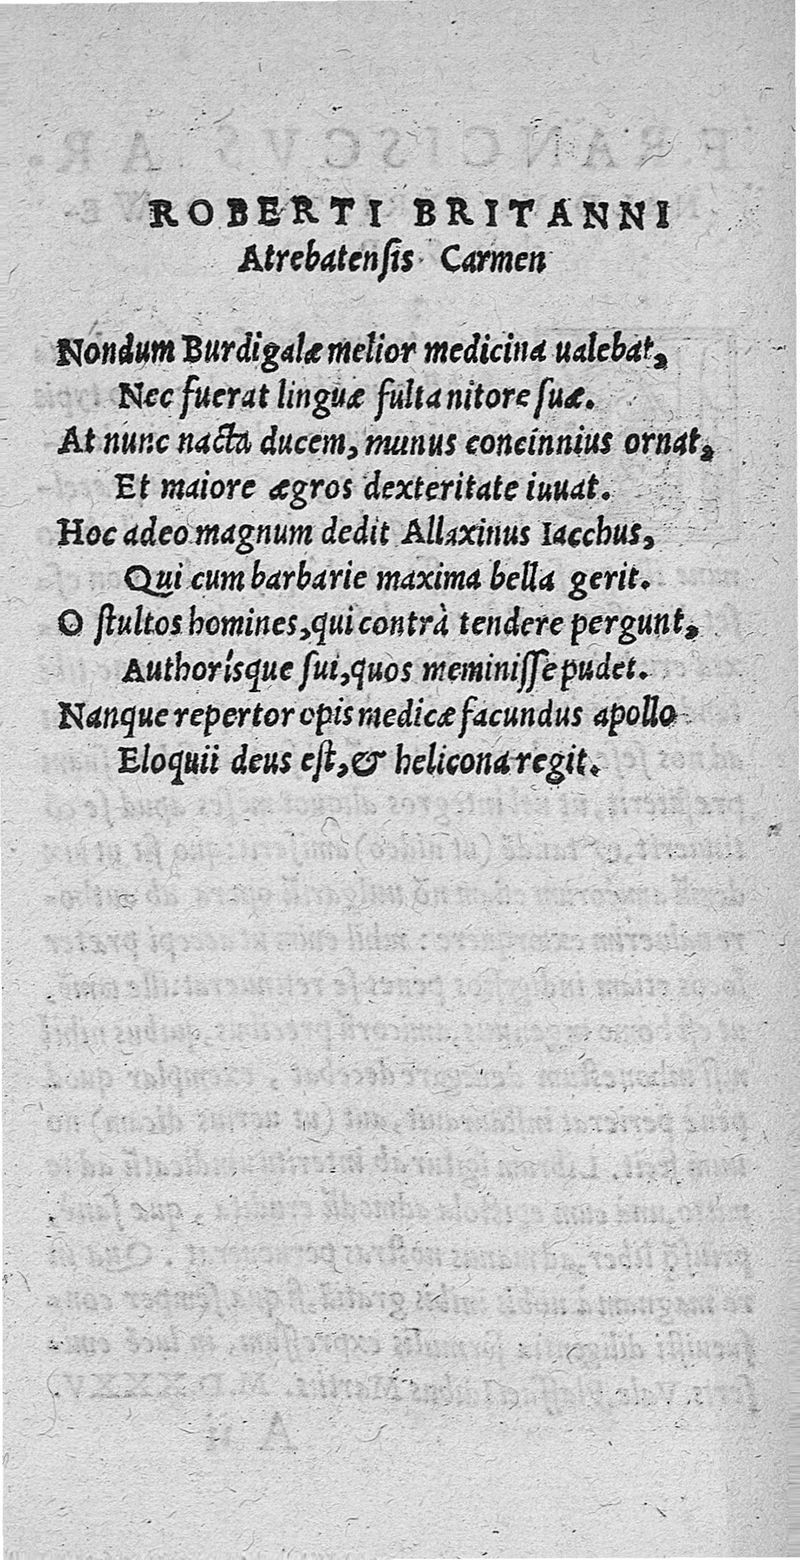 ROBERTI BRITANNI
Atrebatensis Carmen
Nondum Burdigalæ melior medicina ualebat,
Nec fuerat linguæ fulta nitore suæ.
At nunc nacta ducem, munus concinnius ornat,
Et maiore ægros dexteritate iuuat.
Hoc adeo magnum dedit Allaxinus Iacchus,
Qui cum barbarie maxima bella gerit.
O stultos homines, qui contrà tendere pergunt,
Authorísque sui, quos meminisse pudet.
Nanque repertor opis medicæ facundus apollo
Eloquii deus est, & helicona regit.